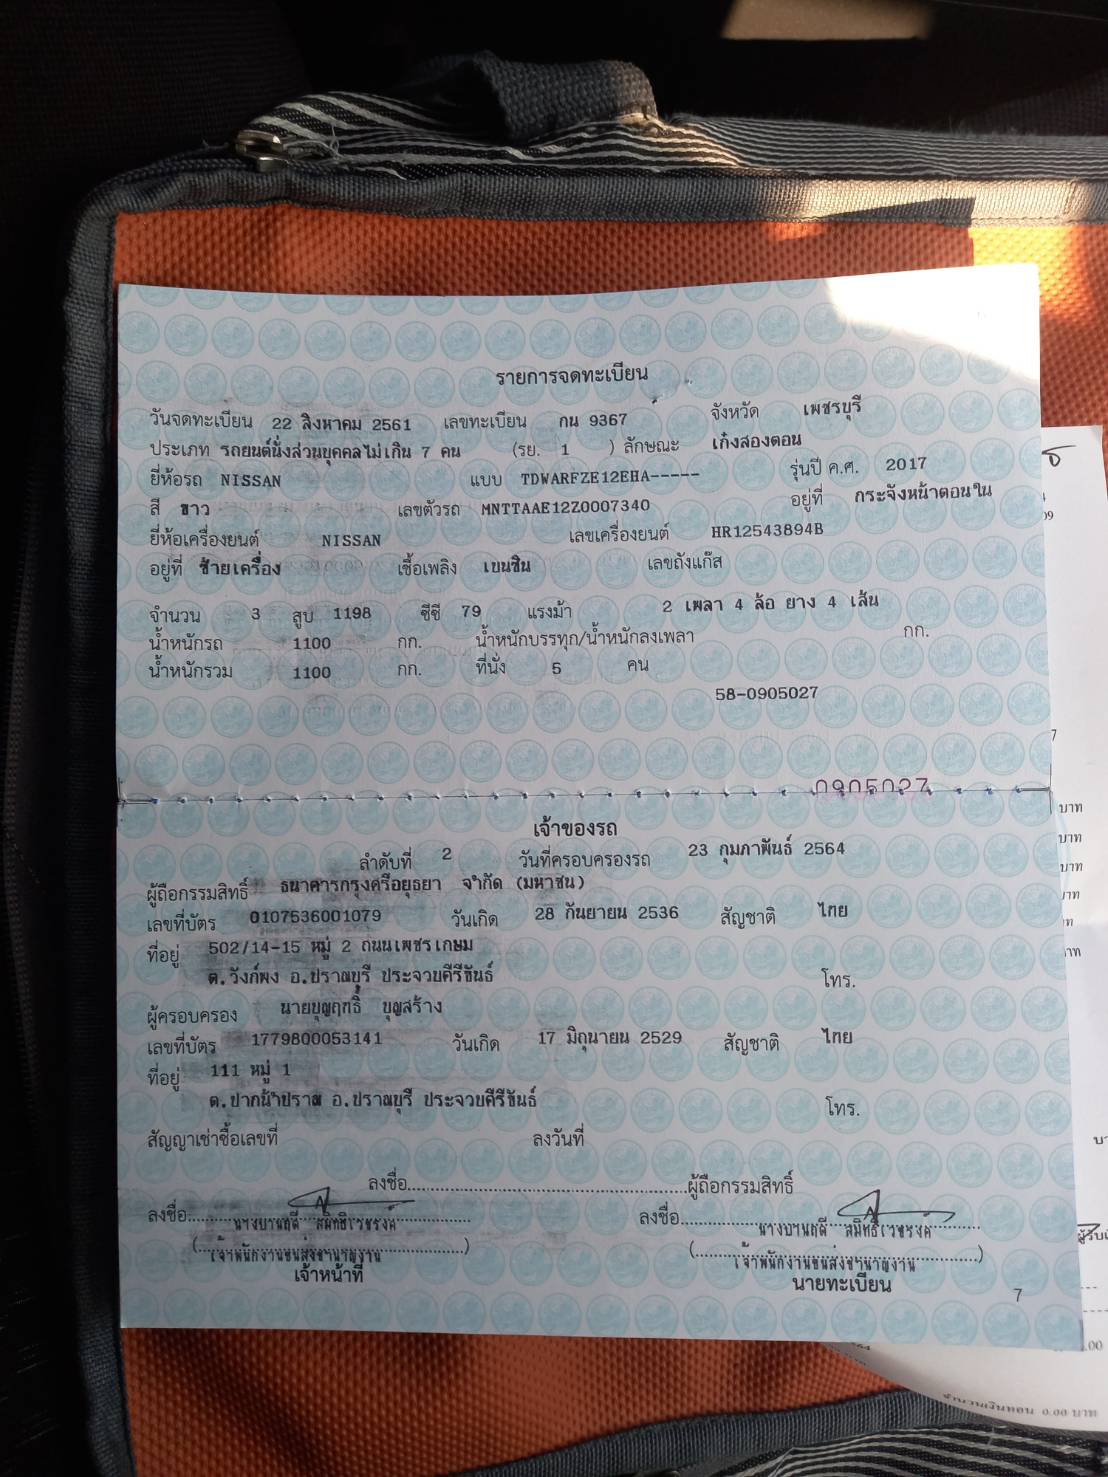 รายการจดทะเบียน
วันจดทะเบียน 22 สิงหาคม 2561 เลขทะเบียน กน 9367 จังหวัด เพชรบุรี
ประเภท รถยนต์นั่งส่วนบุคคลไม่เกิน 7 คน (รย. 1 ) ลักษณะ เก๋งสองตอน
ยี่ห้อรถ NISSAN แบบ TDWARFZE12EHA----- รุ่นปี ค.ศ. 2017
สี ขาว เลขตัวรถ MNTTAAE12Z0007340 อยู่ที่ กระจังหน้าตอนใน
ยี่ห้อเครื่องยนต์ NISSAN เลขเครื่องยนต์ HR12543894B
อยู่ที่ ซ้ายเครื่อง เชื้อเพลิง เบนซิน เลขถังแก๊ส
จำนวน 3 สูบ 1198 ซีซี 79 แรงม้า 2 เพลา 4 ล้อ ยาง 4 เส้น
น้ำหนักรถ 1100 กก. น้ำหนักบรรทุก/น้ำหนักลงเพลา กก.
น้ำหนักรวม 1100 กก. ที่นั่ง 5 คน
58-0905027
0905027
เจ้าของรถ
ลำดับที่ 2 วันที่ครอบครองรถ 23 กุมภาพันธ์ 2564
ผู้ถือกรรมสิทธิ์ ธนาคารกรุงศรีอยุธยา จำกัด (มหาชน)
เลขที่บัตร 0107536001079 วันเกิด 28 กันยายน 2536 สัญชาติ ไทย
ที่อยู่ 502/14-15 หมู่ 2 ถนนเพชรเกษม
ต.วังก์พง อ.ปราณบุรี ประจวบคีรีขันธ์ โทร.
ผู้ครอบครอง นายบุญฤทธิ์ บุญสร้าง
เลขที่บัตร 1779800053141 วันเกิด 17 มิถุนายน 2529 สัญชาติ ไทย
ที่อยู่ 111 หมู่ 1
ต.ปากน้ำปราณ อ.ปราณบุรี ประจวบคีรีขันธ์ โทร.
สัญญาเช่าซื้อเลขที่ ลงวันที่
ลงชื่อ ผู้ถือกรรมสิทธิ์
ลงชื่อ ลงชื่อ
(เจ้าพนักงานขนส่งชำนาญงาน) (เจ้าพนักงานขนส่งชำนาญงาน)
เจ้าหน้าที่ นายทะเบียน
7
บาท
บาท
บาท
จำนวนเงินทอน 0.00 บาท